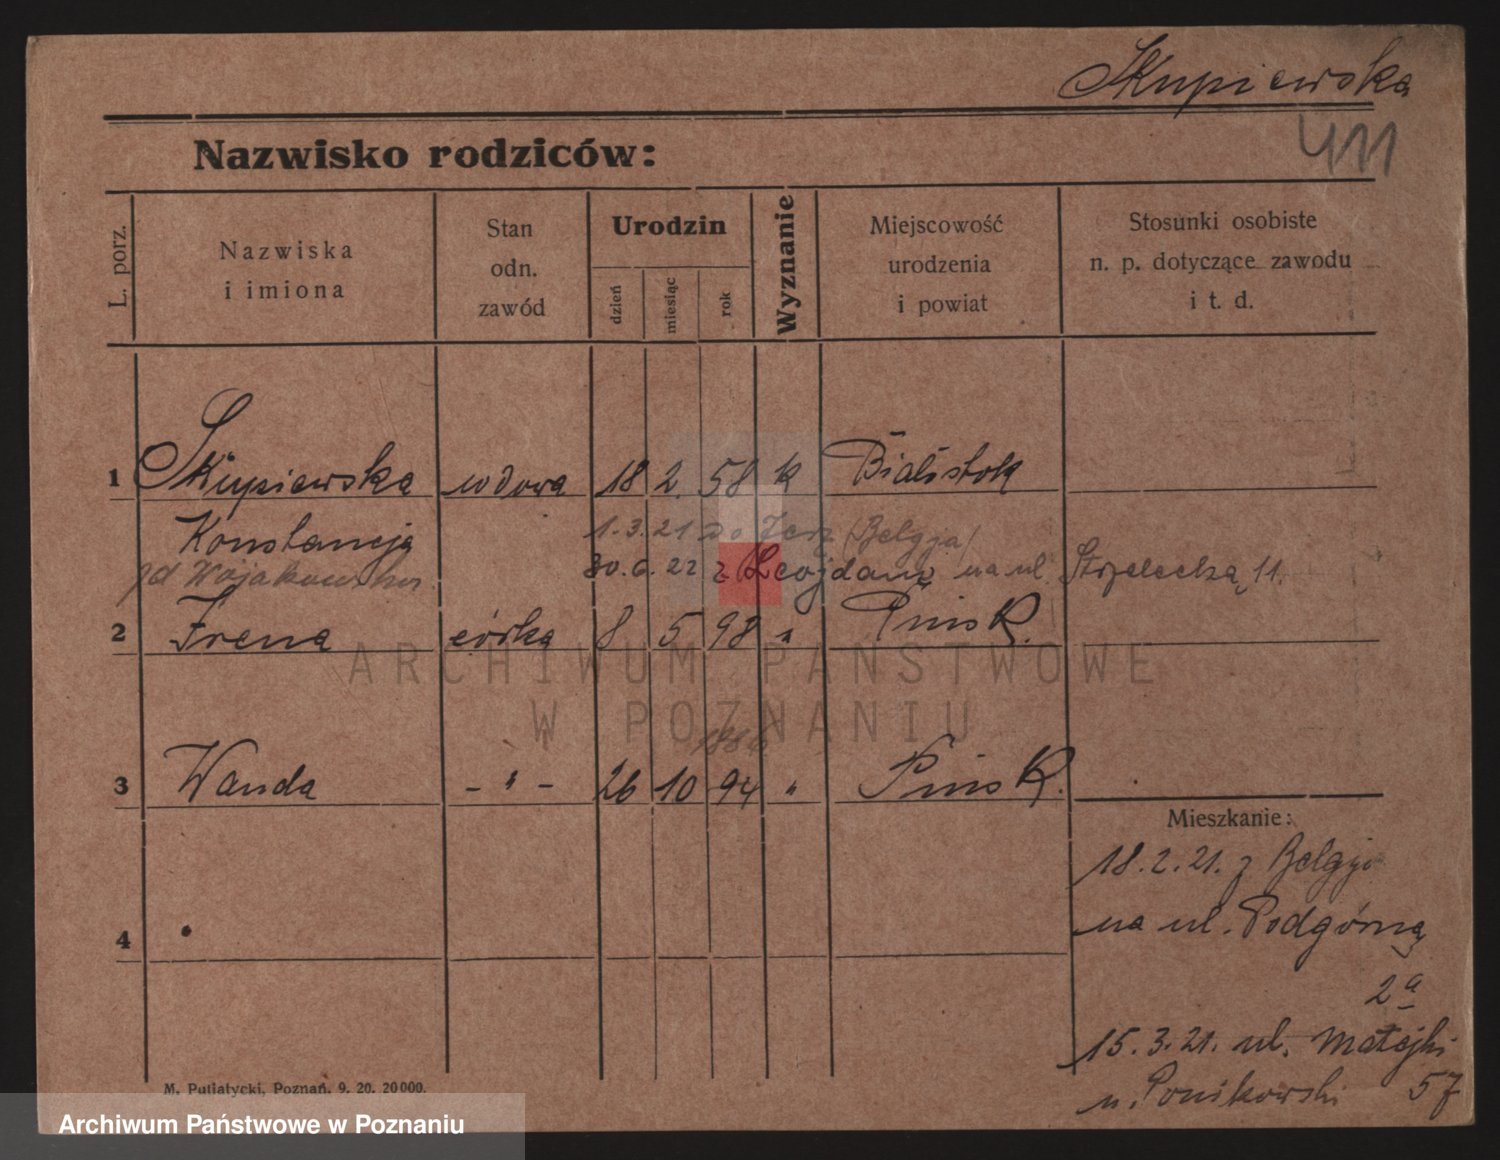 Skupiewska
411
Nazwisko rodziców:
L. porz.
Nazwiska
i imiona
Stan
odn.
zawód
Urodzin
dzień
miesiąc
rok
Wyznanie
Miejscowość
urodzenia
i powiat
Stosunki osobiste
n. p. dotyczące zawodu
i t. d.
1 Skupiewska wdowa 18 2. 58 k Bialistok
Konstancja
1.3.21 do (Belgja)
30.6.22 z na ul. Strzelecką 11.
2 Irena córka 8 5 98 " Pinsk.
ARCHIWUM PAŃSTWOWE
W POZNANIU
3 Wanda - " - 26 10 94 " Pinsk.
Mieszkanie:
18.2.21. z Belgji
na ul. Podgórną
2a
4
15.3.21. ul. Matejki
u. Ponikowski 57
M. Putiatycki, Poznań. 9. 20. 20000.
Archiwum Państwowe w Poznaniu